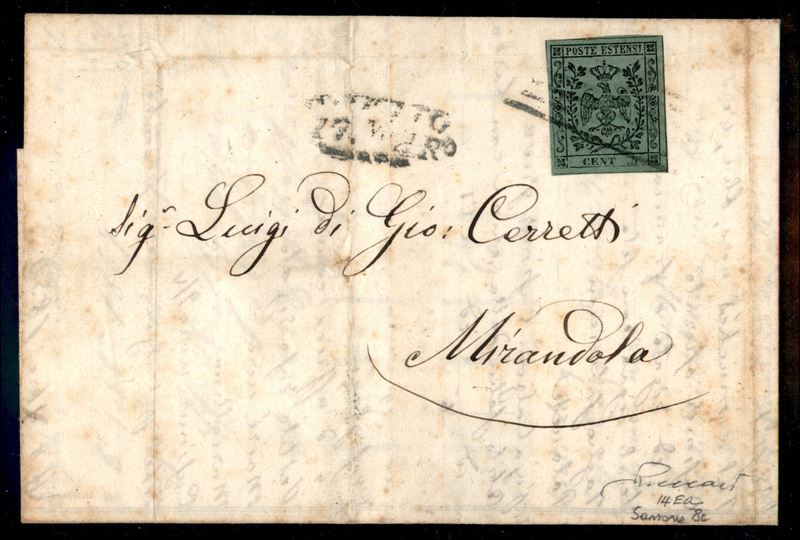 POSTE ESTENSI
CENT 5
17. MAR
Sigr. Luigi di Gio: Cerretti
Mirandola
14Ea
Sassone 8c